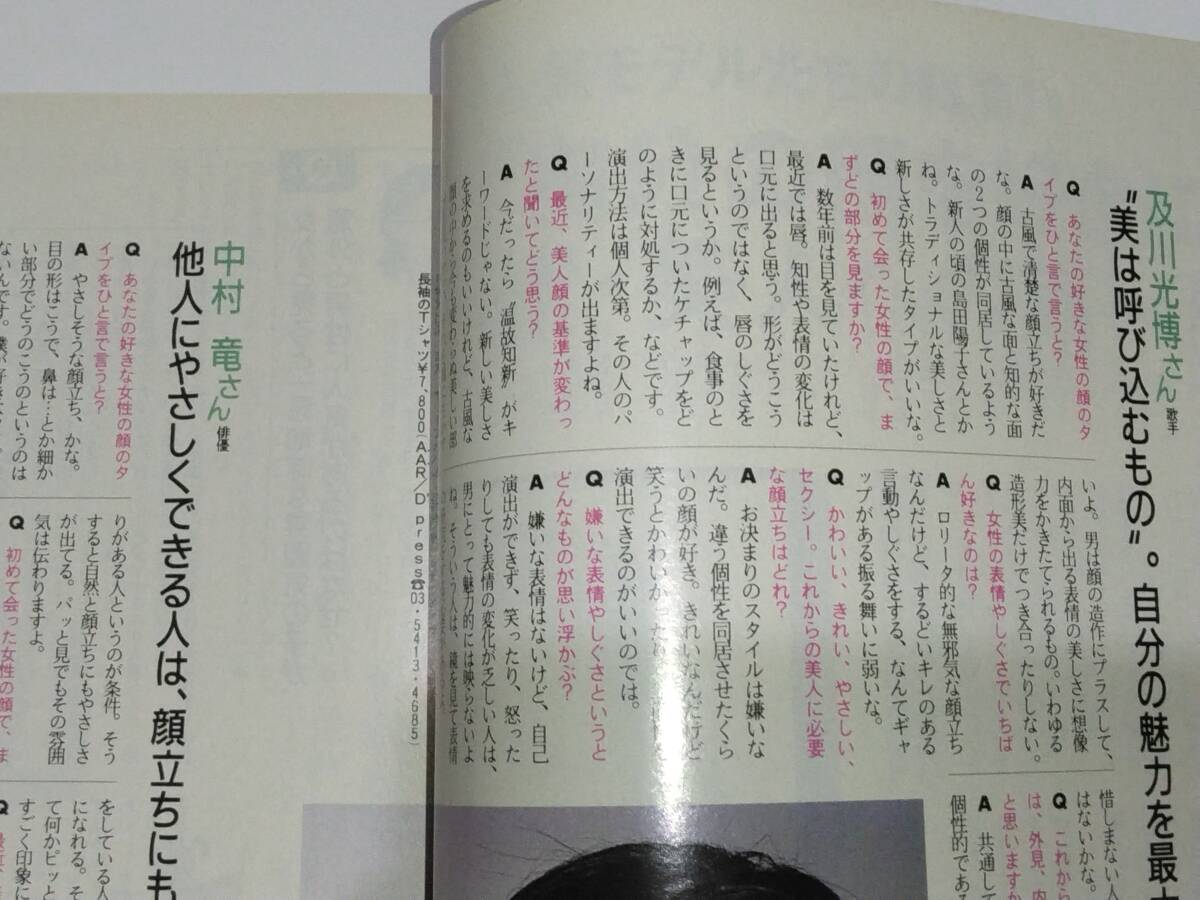 及川光博さん 歌手
“美は呼び込むもの”。自分の魅力を最
Q あなたの好きな女性の顔のタ
イプをひと言で言うと?
A 古風で清楚な顔立ちが好きだ
な。顔の中に古風な面と知的な面
の2つの個性が同居しているよう
な。新人の頃の島田陽子さんとか
ね。トラディショナルな美しさと
新しさが共存したタイプがいいな。
Q 初めて会った女性の顔で、ま
ずどの部分を見ますか?
A 数年前は目を見ていたけれど、
最近では唇。知性や表情の変化は
口元に出ると思う。形がどうこう
というのではなく、唇のしぐさを
見るというか。例えば、食事のと
きに口元についたケチャップをど
のように対処するか、などです。
演出方法は個人次第。その人のパ
ーソナリティーが出ますよね。
Q 最近、美人顔の基準が変わっ
たと聞いてどう思う?
A 今だったら“温故知新”がキ
ーワードじゃない。新しい美しさ
を求めるのもいいけれど、古風な
顔の中から今も変わらぬ美しい部
いよ。男は顔の造作にプラスして、
内面から出る表情の美しさに想像
力をかきたてられるもの。いわゆる
造形美だけでつき合ったりしない。
Q 女性の表情やしぐさでいちば
ん好きなのは?
A ロリータ的な無邪気な顔立ち
なんだけど、するどいキレのある
言動やしぐさをする、なんてギャ
ップがある振る舞いに弱いな。
Q かわいい、きれい、やさしい、
セクシー。これからの美人に必要
な顔立ちはどれ?
A お決まりのスタイルは嫌いな
んだ。違う個性を同居させたくら
いの顔が好き。きれいなんだけど
笑うとかわいかったり、
演出できるのがいいのでは。
Q 嫌いな表情やしぐさというと
どんなものが思い浮かぶ?
A 嫌いな表情はないけど、自己
演出ができず、笑ったり、怒った
りしても表情の変化が乏しい人は、
男にとって魅力的には映らないよ
ね。そういう人は、鏡を見て表情
惜しまない人
はないかな。
Q これから
は、外見、内
と思いますか
A 共通して
個性的である
長袖のTシャツ¥7,800(AAR/D'press☎03・5413・4685)
中村 竜さん 俳優
他人にやさしくできる人は、顔立ちにも
Q あなたの好きな女性の顔のタ
イプをひと言で言うと?
A やさしそうな顔立ち、かな。
目の形はこうで、鼻は…とか細か
い部分でどうのこうのというのは
ないんです。僕が好き
りがある人というのが条件。そう
すると自然と顔立ちにもやさしさ
が出てる。パッと見でもその雰囲
気は伝わりますよ。
Q 初めて会った女性の顔で、ま
をしている人
になれる。そ
て何かピッと
すごく印象に
Q 最近